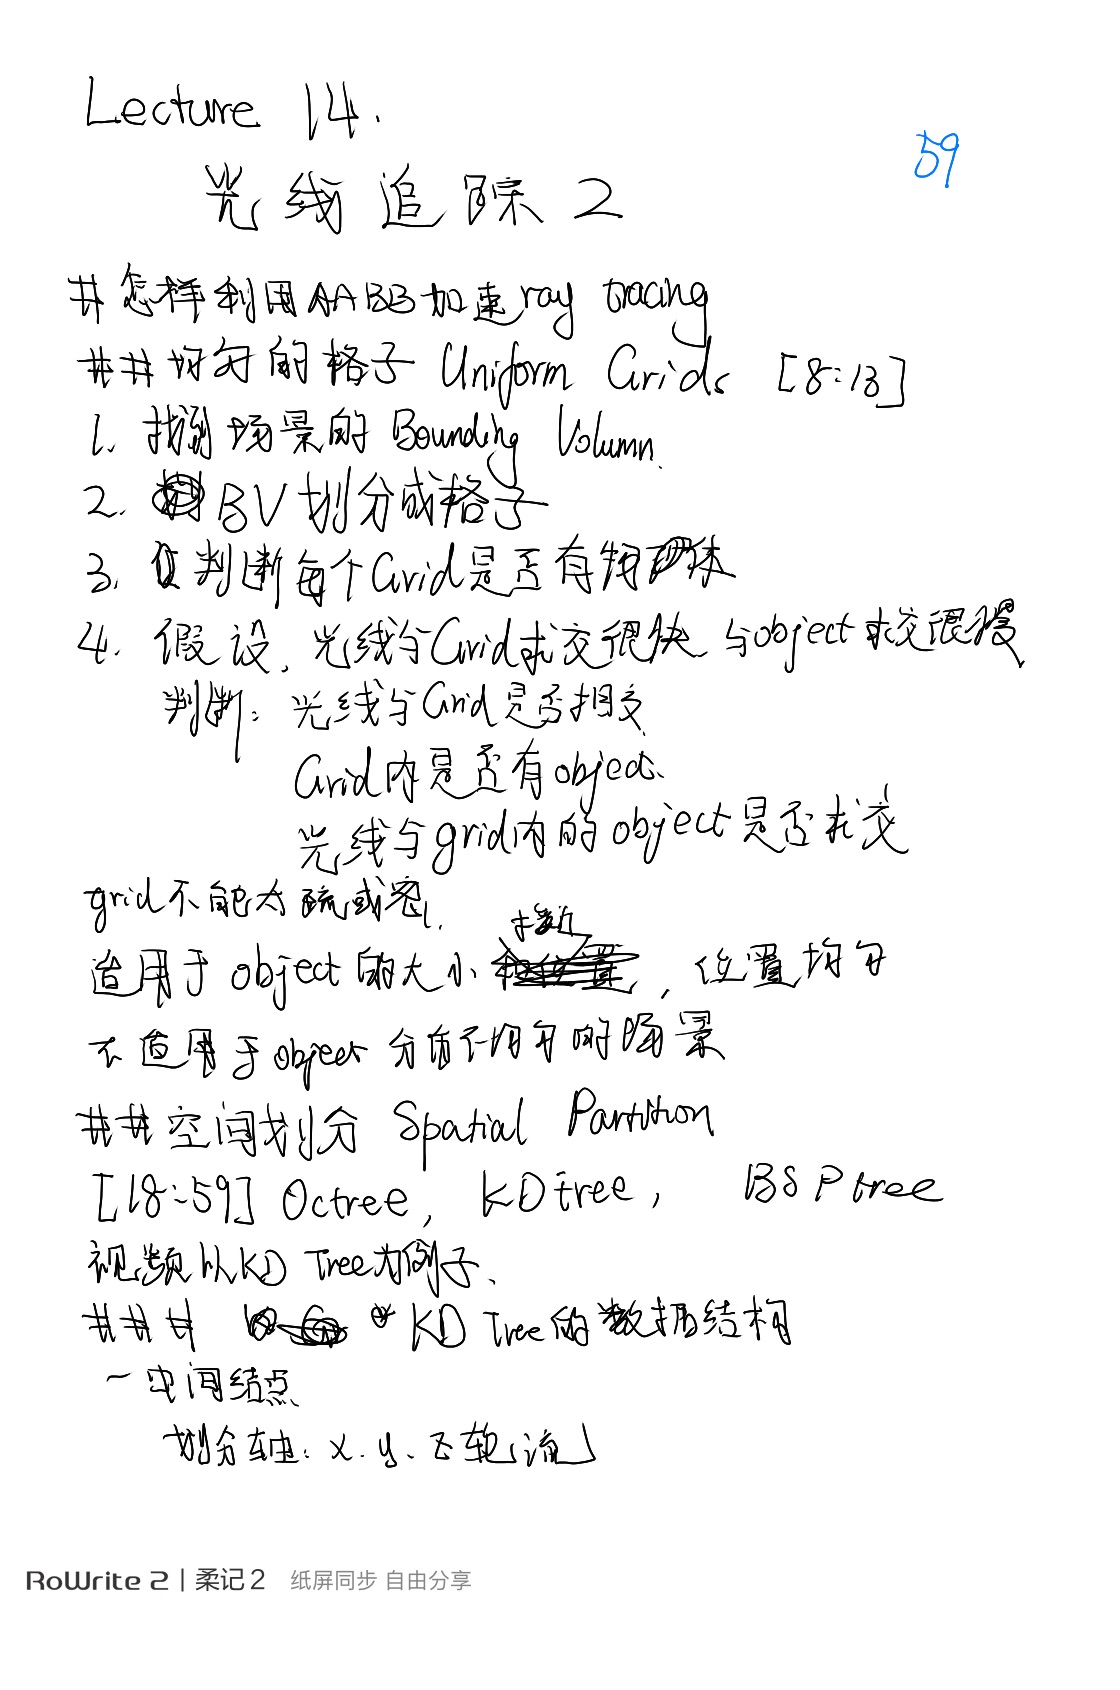 Lecture 14.
59
光线追踪 2
# 怎样利用AABB加速ray tracing
## 均匀的格子 Uniform Grids [8:13]
1. 找到场景的 Bounding Volumn.
2. BV划分成格子
3. 判断每个Grid是否有物体
4. 假设, 光线与Grid求交很快 与object求交很慢
判断: 光线与Grid是否相交
Grid内是否有object.
光线与grid内的object是否求交
grid不能太疏或密.
适用于object的大小接近, 位置均匀
不适用于object 分布不均匀的场景
## 空间划分 Spatial Partition
[18:59] Octree, KD tree, BSP tree
视频以KD Tree为例子.
### KD Tree的数据结构
- 中间结点
划分轴: x.y.z轮流
RoWrite 2 | 柔记 2 纸屏同步 自由分享